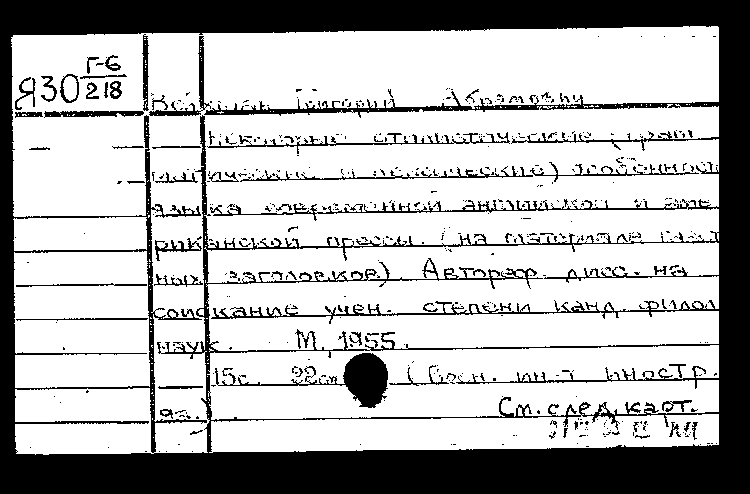 Я30 Г-6
218
Вейхман Григорий Абрамович
Некоторые стилистические (грам
матические и лексические) особенност
языка современной английской и аме
риканской прессы. (на материале газет
ных заголовков). Автореф. дисс. на
соискание учен. степени канд. филол
наук. М. 1955.
15с. 22см (Воен. ин-т иностр.
яз.).
См. след. карт.